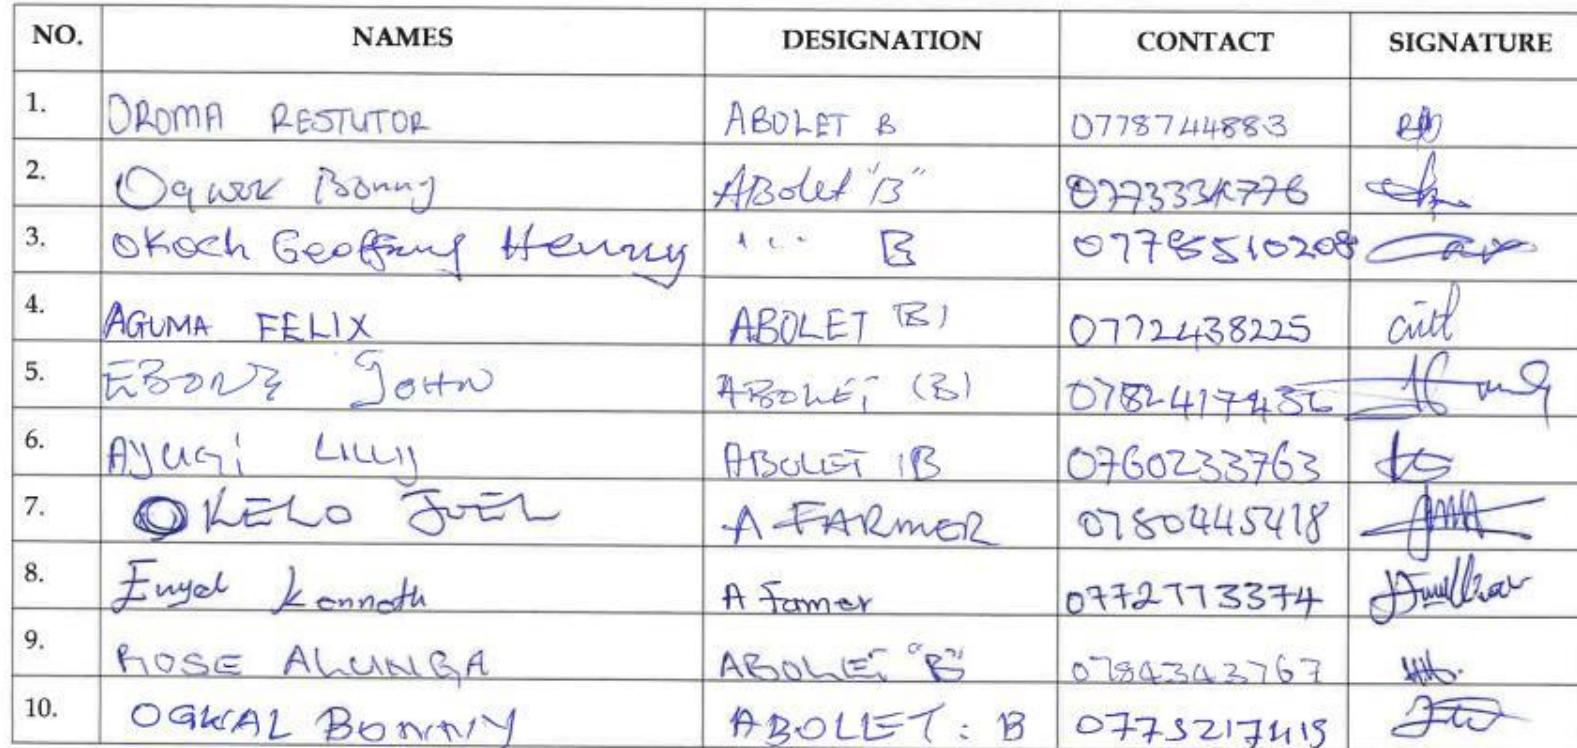 NO. NAMES DESIGNATION CONTACT SIGNATURE
1. OROMA RESTUTOR ABOLET B 0778744883
2. Ogwok Bonny ABolet "B"
3. OKoch Geoffrey Henry " " B 07785510208
4. AGUMA FELIX ABOLET (B) 0772438225
5. EBONG JOHN ABOLET (B)
6. AYUGI LILLY ABOLET B 0760233763
7. OKELO JOEL A FARMER 0780445418
8. Kenneth A Famer 0772773374
9. ROSE ALUNGA ABOLET "B" 0784343767
10. OGWAL BONNY ABOLET : B